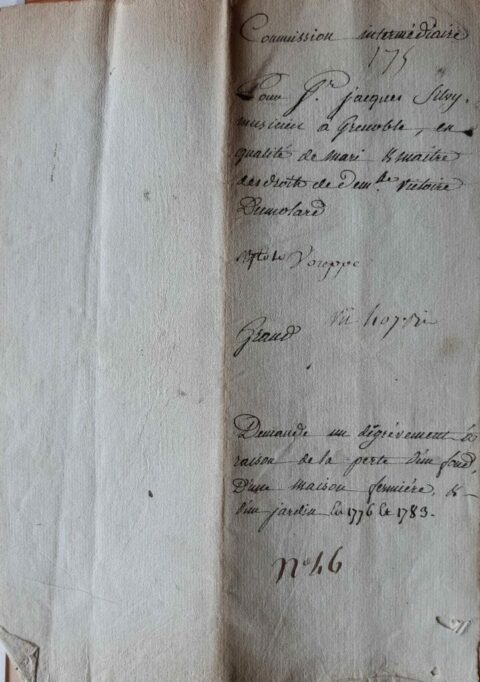 Commission intermédiaire
175
Pour Sr. jacques Silvy,
musicien à Grenoble, en
qualité de mari & maitre
des droits de Demlle Victoire
Dumolard
Voreppe
Grand
Demande un dégrèvement à
raison de la perte d'un fond,
D'une maison fermière, &
d'un jardin en 1776 & 1783.
No 46